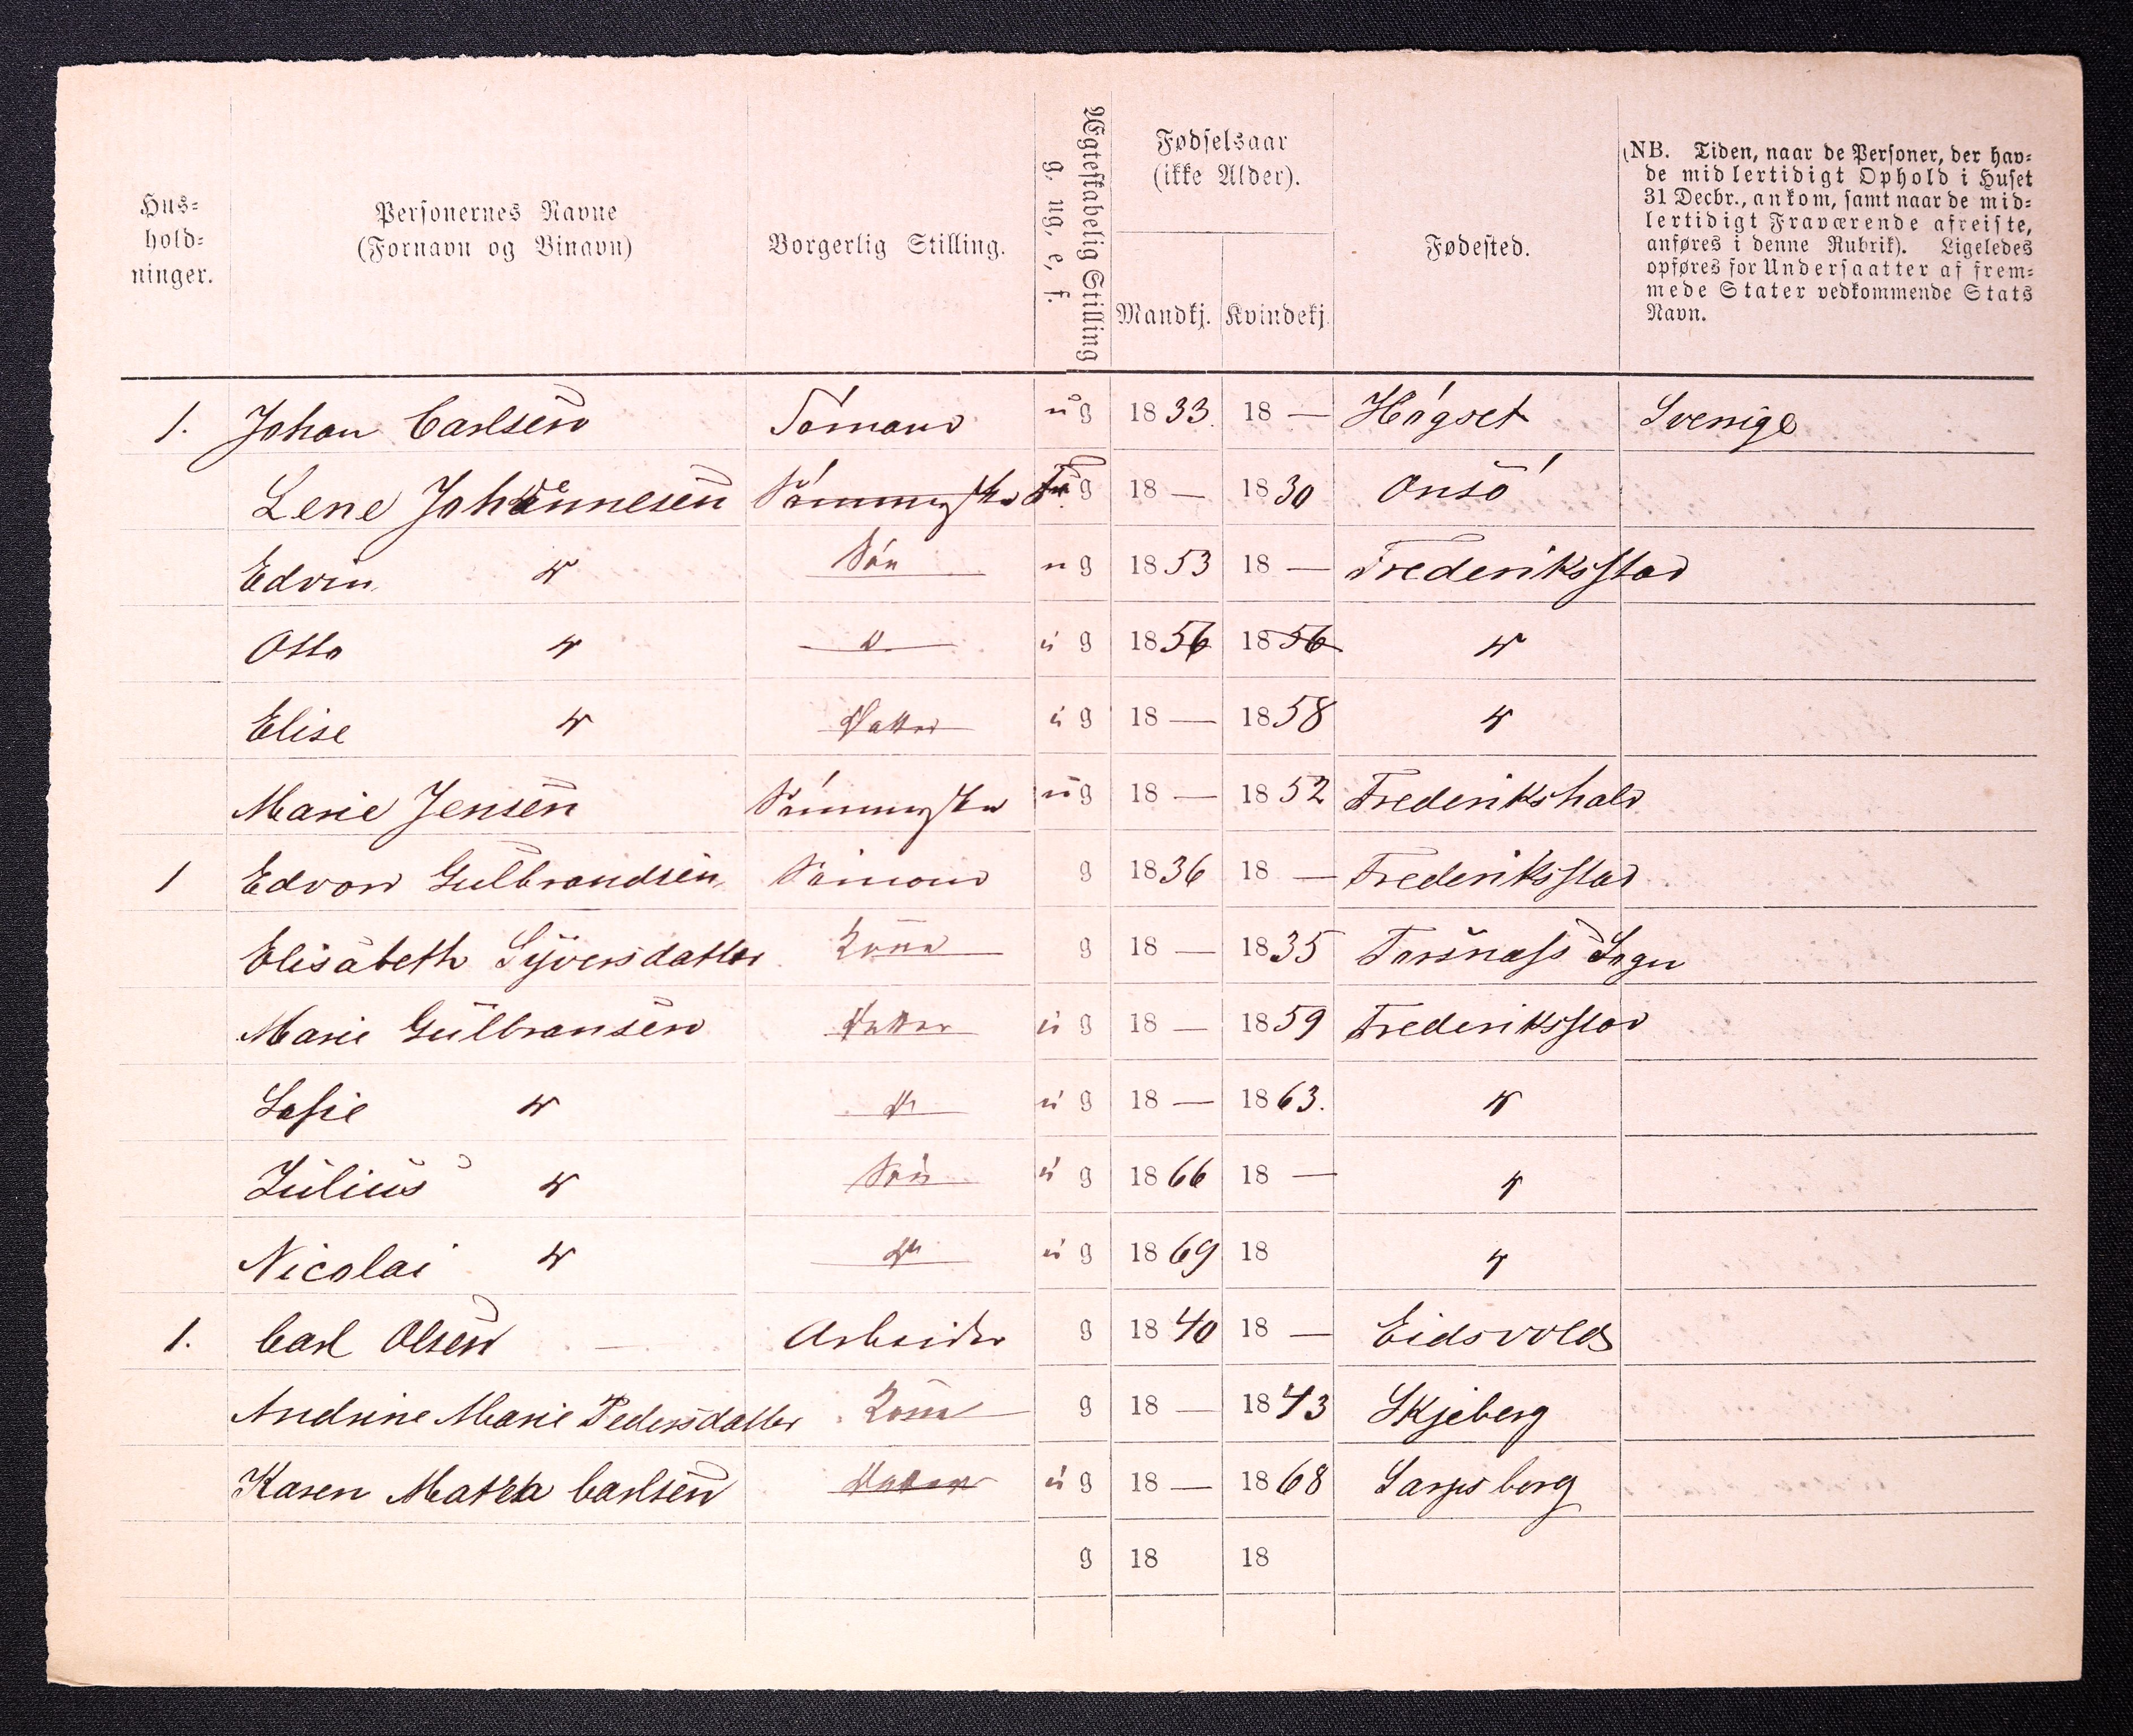 Hus-
hold-
ninger.
Personernes Navne
(Fornavn og Vinavn)
Borgerlig Stilling.
Ægteskabelig Stilling
g, ug, e, f.
Fødselsaar
(ikke Alder).
Mandkj. Kvindekj.
Fødested.
(NB. Tiden, naar de Personer, der hav-
de midlertidigt Ophold i Huset
31 Decbr., ankom, samt naar de mid-
lertidigt Fraværende afreiste,
anføres i denne Rubrik). Ligeledes
opføres for Undersaatter af frem-
mede Stater vedkommende Stats
Navn.
1. Johan Carlsen Sömand ug 1833. 18 — Högset Sverrige
Lene Johannesen g 18 — 1830 Onsö
Edvin " Sön ug 1853 18 — Frederiksstad
Otto " " ug 1856 1856 "
Elise " Datter ug 18 — 1858 "
Marie Jensen ug 18 — 1852 Frederikshald
1 Edvard Gulbrandsen Sömand g 1836 18 — Frederiksstad
Elisabeth Syversdatter Kone g 18 — 1835 Sogn
Marie Gulbransen Datter ug 18 — 1859 Frederiksstad
Sofie " " ug 18 — 1863. "
Julius " Sön ug 1866 18 — "
Nicolai " " ug 1869 18 "
1. Carl Olsen Arbeider g 1840 18 — Eidsvold
Andrine Marie Pedersdatter Kone g 18 — 1843 Skjeberg
Karen Carlsen Datter ug 18 — 1868 Sarpsborg
g 18 18